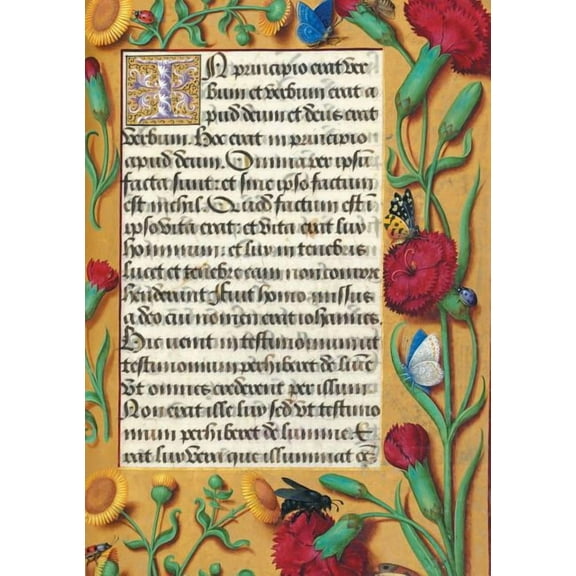 In principio erat ver
bum et verbum erat a
pud deum et deus erat
verbum. Hoc erat in principio
apud deum. Omnia per ipsū
facta sunt: et sine ipso factum
est nichil. Quod factum est i
ipso vita erat: et vita erat lux
hominum: et lux in tenebris
lucet et tenebre eam non compre
henderunt. Fuit homo missus
a deo cui nomen erat iohannes.
Hic venit in testimonium ut
testimonium perhiberet de lumīe
Vt omnes crederent per illum
Non erat ille lux sed vt testimo
nium perhiberet de lumine. E
rat lux vera que illuminat oē